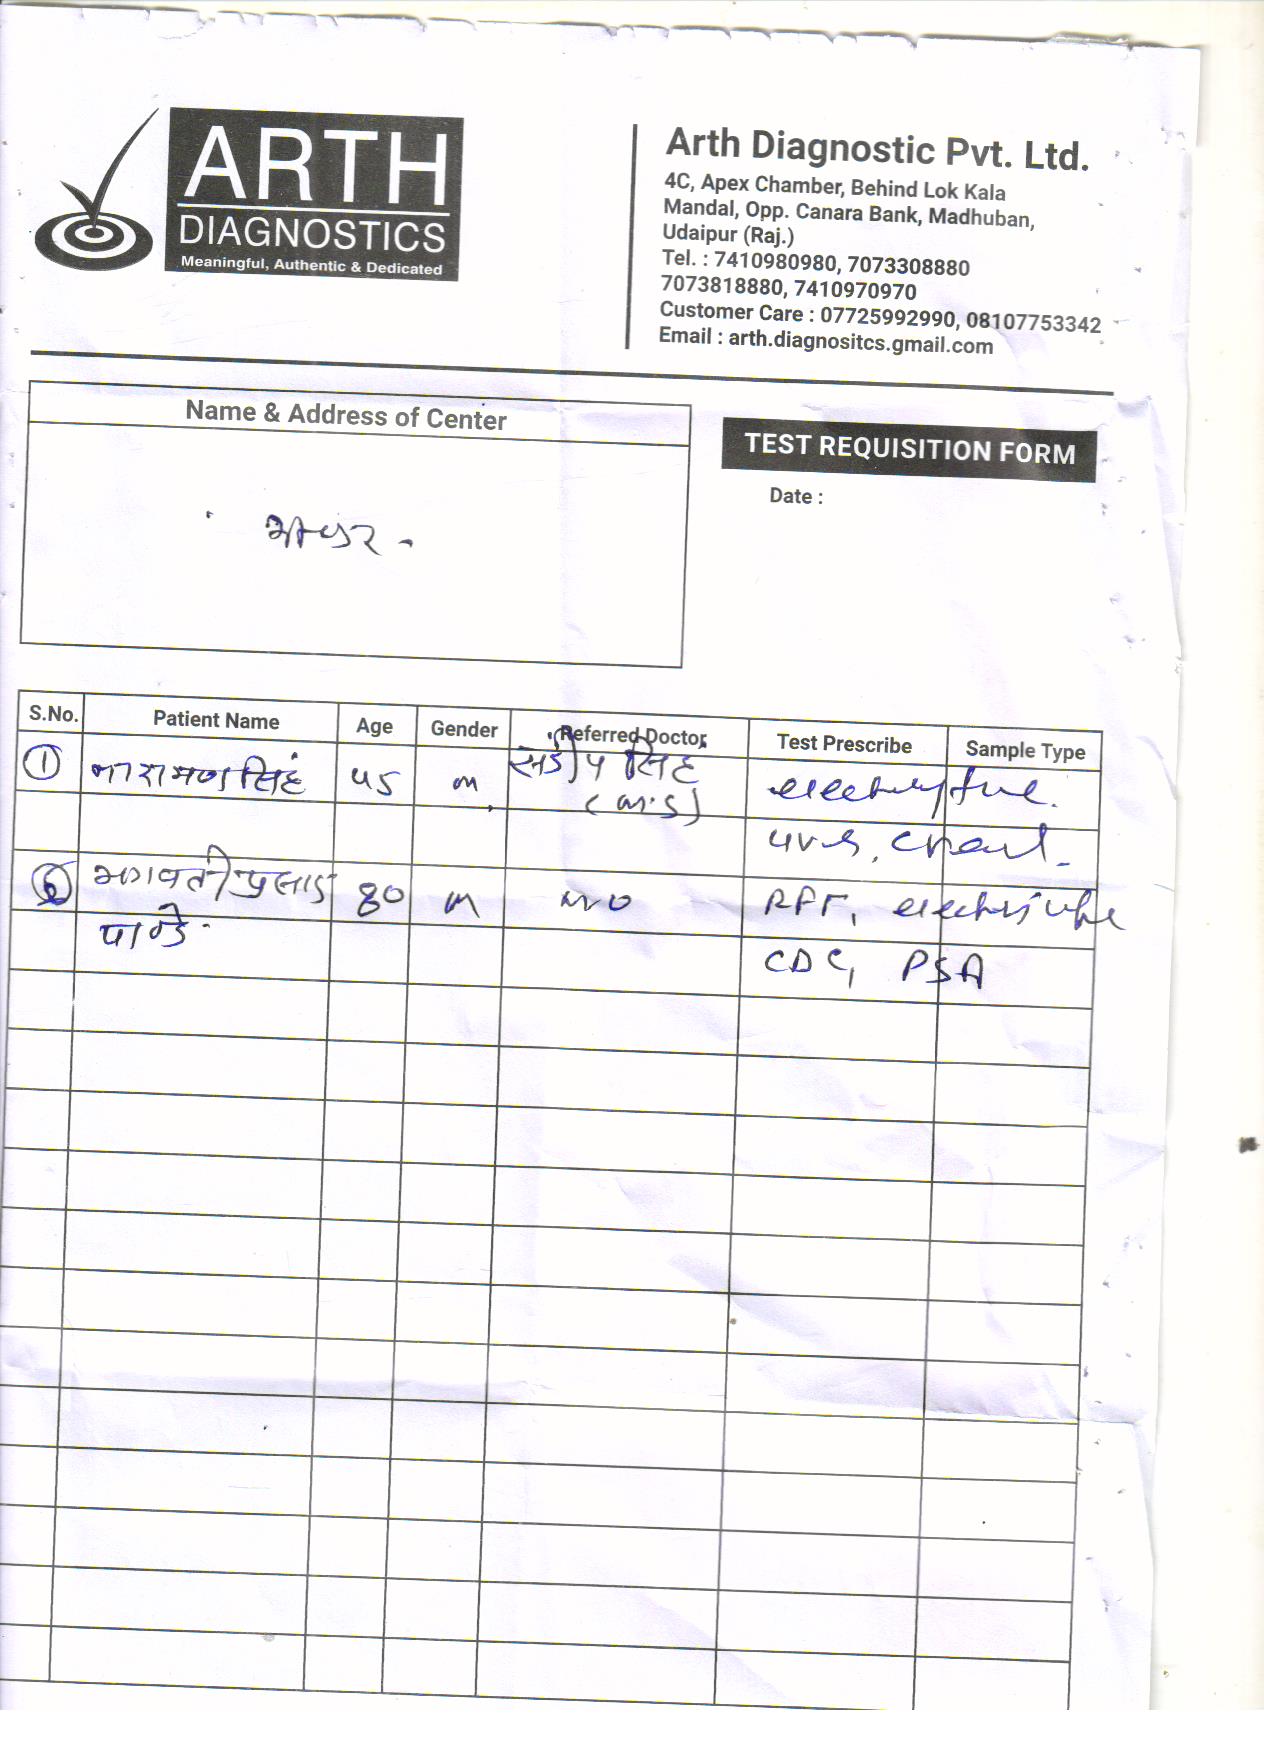 ARTH
DIAGNOSTICS
Meaningful, Authentic & Dedicated
Arth Diagnostic Pvt. Ltd.
4C, Apex Chamber, Behind Lok Kala
Mandal, Opp. Canara Bank, Madhuban,
Udaipur (Raj.)
Tel. : 7410980980, 7073308880
7073818880, 7410970970
Customer Care : 07725992990, 08107753342
Email : arth.diagnositcs.gmail.com
Name & Address of Center
TEST REQUISITION FORM
Date :
S.No. Patient Name Age Gender Referred Doctor Test Prescribe Sample Type
1 नारायण सिंह 45 m सिंह
(M.S)
भगवती प्रसाद 80 m RFT,
पान्डे CBC, PSA